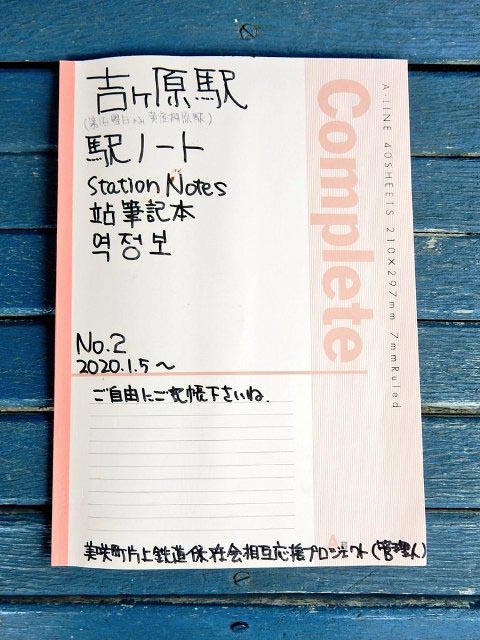 吉ヶ原駅
駅ノート
Station Notes
站筆記本
역정보
No.2
2020.1.5～
ご自由にご記帳下さいね.
美咲町片上鉄道保存会相互応援プロジェクト(管理人)
Complete
A-LINE 40SHEETS 210×297mm 7mmRuled